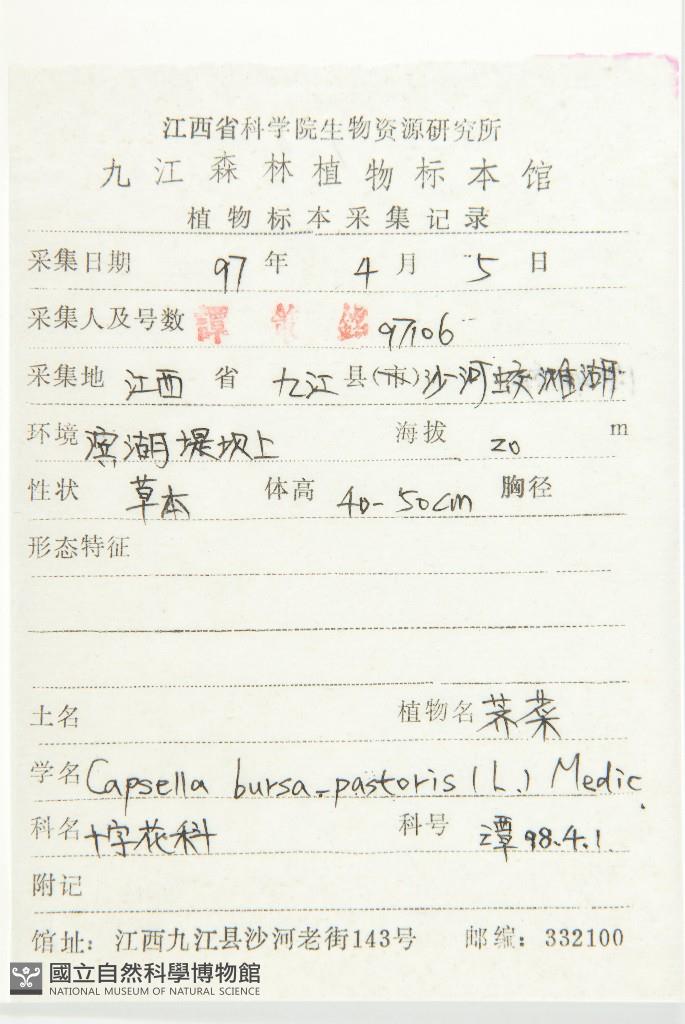 江西省科学院生物资源研究所
九江森林植物标本馆
植物标本采集记录
采集日期 97 年 4 月 5 日
采集人及号数 譚 銘 97106
采集地 江西 省 九江 县(市) 沙河蛟滩湖
环境 滨湖堤坝上 海拔 20 m
性状 草本 体高 40-50cm 胸径
形态特征
土名 植物名 荠菜
学名 Capsella bursa-pastoris (L.) Medic.
科名 十字花科 科号 潭 98.4.1.
附记
馆址：江西九江县沙河老街143号 邮编：332100
國立自然科學博物館
NATIONAL MUSEUM OF NATURAL SCIENCE